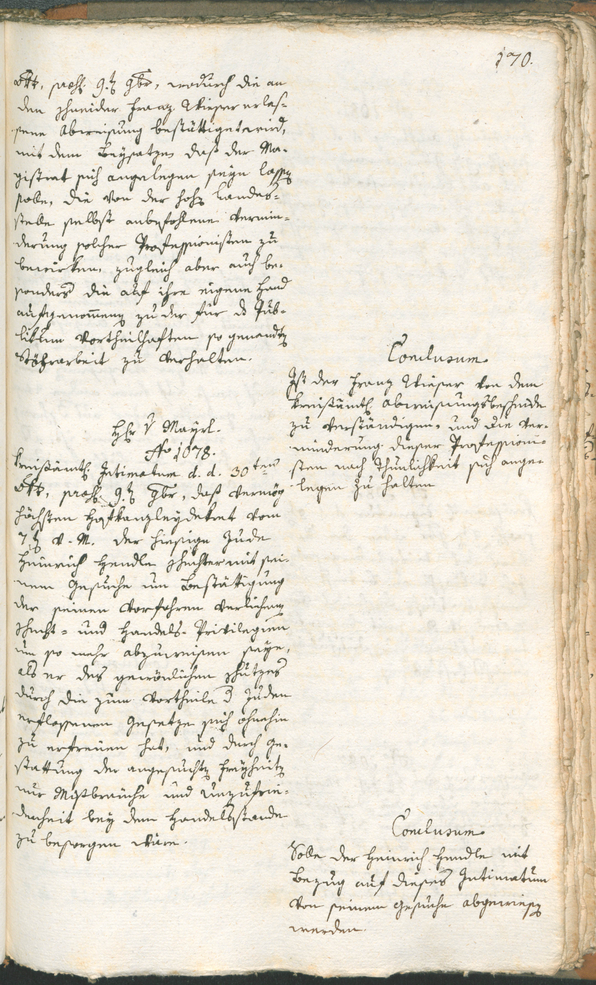 170.
8br, praes. 9. 9br, wodurch die an
den Schneider Franz Wieser erlas-
sene Abweisung bestättiget wird,
mit dem Beysatze, daß der Ma-
gistrat sich angelegen seyn lassen
solle, die von der hohen Landes-
stelle selbst anbefohlene Vermin-
derung solcher Professionisten zu
bewirken, zugleich aber auch be-
sonders die auf ihre eigene Hand
aufgenommenen zu der für das Pub-
likum vortheilhaften so genanten
Stöhrarbeit zu verhalten.
Conclusum
Ist der Franz Wieser von dem
kreisämtl. Abweisungsbescheide
zu verständigen, und die Ver-
minderung dieser Professioni-
sten nach Thunlichkeit sich ange-
legen zu halten
Hr v Mayrl.
No 1078.
Kreisämtl. Intimatum d. d. 30ten
8br, praes. 9. 9br, daß vermög
höchsten Hofkanzleydekret vom
7. v. M. der hiesige Jude
Heinrich Hendle Schechter mit sei-
nem Gesuche um Bestätigung
der seinen Vorfahren verliehenen
Schutz- und Handels-Privilegien
um so mehr abzuweisen seye,
als er des gewöhnlichen Schutzes
durch die zum Vortheile der Juden
erflossenen Gesetze sich ohnehin
zu erfreuen hat, und durch Ge-
stattung der angesuchten Freyheiten
nur Mißbräuche und Unzufrie-
denheit bey dem Handelsstande
zu besorgen wäre.
Conclusum
Solle der Heinrich Hendle mit
Bezug auf dieses Intimatum
von seinem Gesuche abgewiesen
werden.